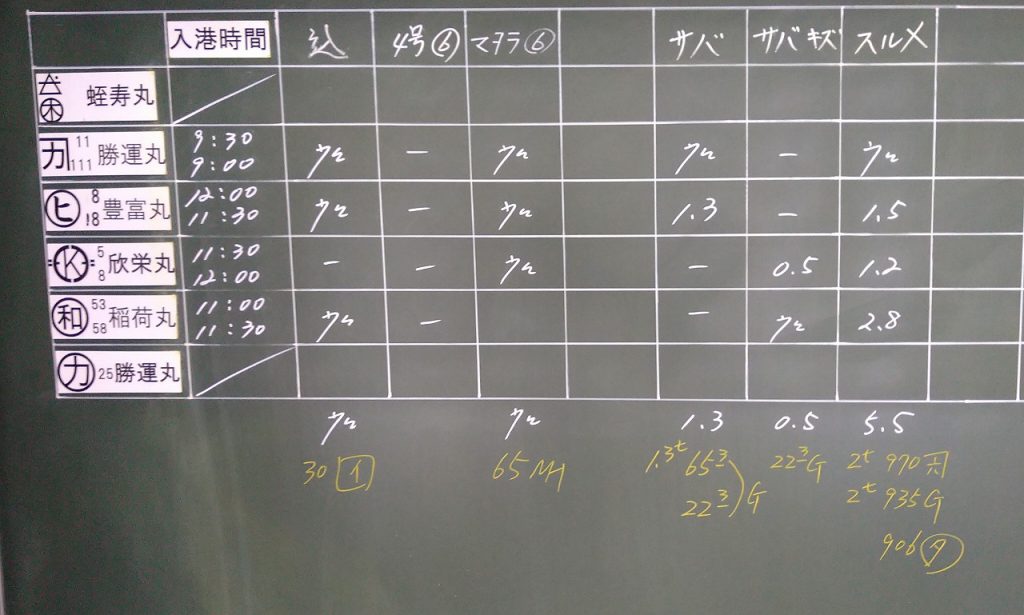 入港時間 込 4号⑥ マタラ⑥ サバ サバキズ スルメ
蛭寿丸
カ 11 111 勝運丸 9:30 9:00 ウル — ウル ウル — ウル
ヒ 8 18 豊富丸 12:00 11:30 ウル — ウル 1.3 — 1.5
K 5 8 欣栄丸 11:30 12:00 — — ウル — 0.5 1.2
和 53 58 稲荷丸 11:00 11:30 ウル — — ウル 2.8
カ 25 勝運丸
ウル ウル 1.3 0.5 5.5
30 イ 65 1.3t 65 22 G 2t 970
22 G 2t 935 G
906 タ